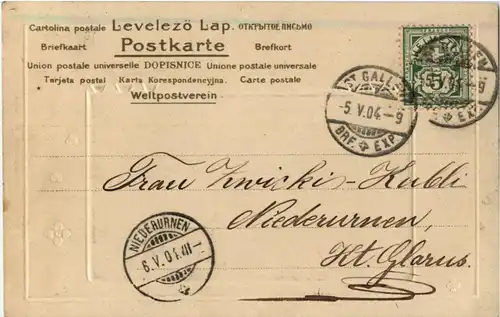 Cartolina postale Levelezö Lap. ОТКРЫТОЕ ПИСЬМО
Briefkaart Postkarte Brefkort
Union postale universelle DOPISNICE Unione postale universale
Tarjeta postal Karta Korespondencyjna. Carte postale
Weltpostverein
ST. GALLEN
-5.V.04-9
BRF. EXP.
5
-9
EXP.
Frau Zwicki-Kubli
Niederurnen,
Kt. Glarus.
NIEDERURNEN
6.V.04.VII-